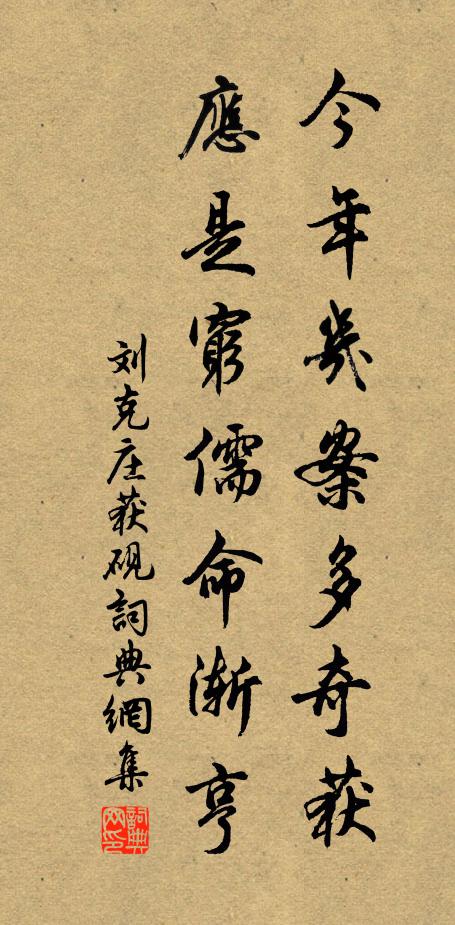 今年幾案多奇获
應是窮儒命漸亨
刘克庄获砚詞典網集
詞典网印